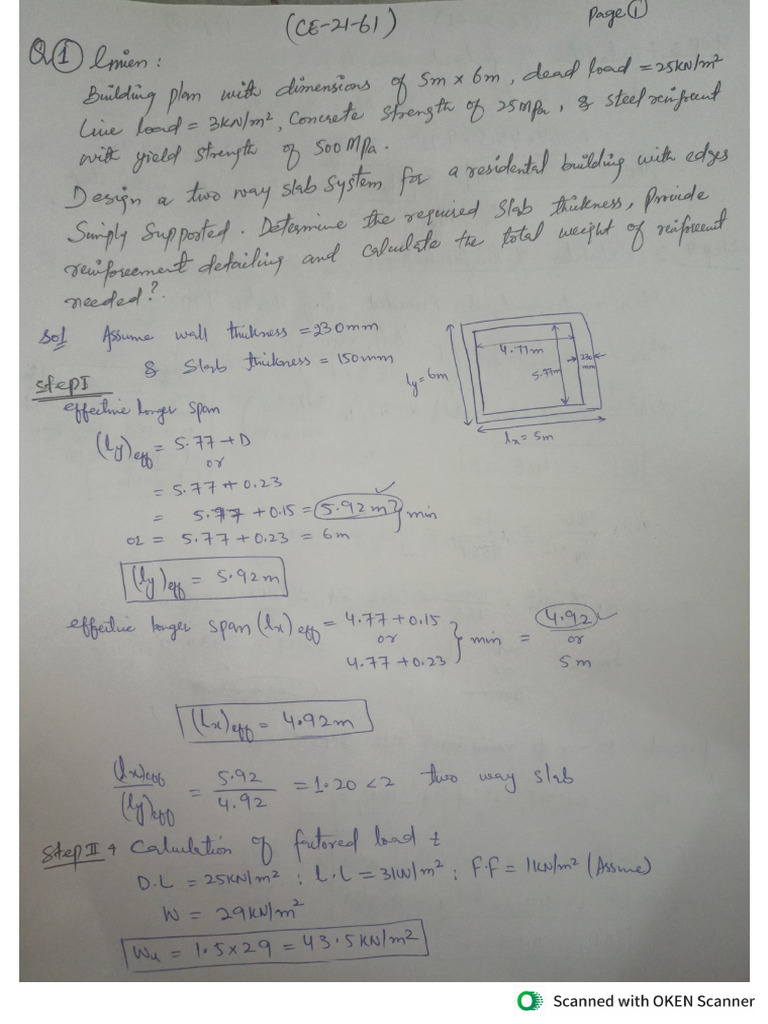 (CE-21-61)
Page ①
Q① Given:
Building plan with dimensions of 5m x 6m, dead load = 25KN/m²
Live load = 3KN/m², Concrete strength of 25MPa, & steel reinforcent
with yield strength of 500 MPa.
Design a two way slab system for a residental building with edges
Simply Supported. Determine the required slab thickness, Provide
reinforcement detailing and calculate the total weight of reinforcent
needed?
Sol Assume wall thickness = 230mm
& Slab thickness = 150mm
Step I
effective longer span
(ly)eff = 5.77 + D
or
= 5.77 + 0.23
= 5.77 + 0.15 = 5.92 m ✓ } min
or = 5.77 + 0.23 = 6m
(ly)eff = 5.92m
ly = 6m
4.77m
5.77m
230
mm
lx = 5m
effective longer span (lx)eff = 4.77 + 0.15
or
4.77 + 0.23
} min = 4.92 ✓
or
5m
(lx)eff = 4.92m
(lx)eff / (ly)eff = 5.92 / 4.92 = 1.20 < 2 two way slab
Step II Calculation of factored load
D.L = 25KN/m² ; L.L = 3KN/m² ; F.F = 1KN/m² (Assume)
W = 29KN/m²
Wu = 1.5 x 29 = 43.5 KN/m²
Scanned with OKEN Scanner